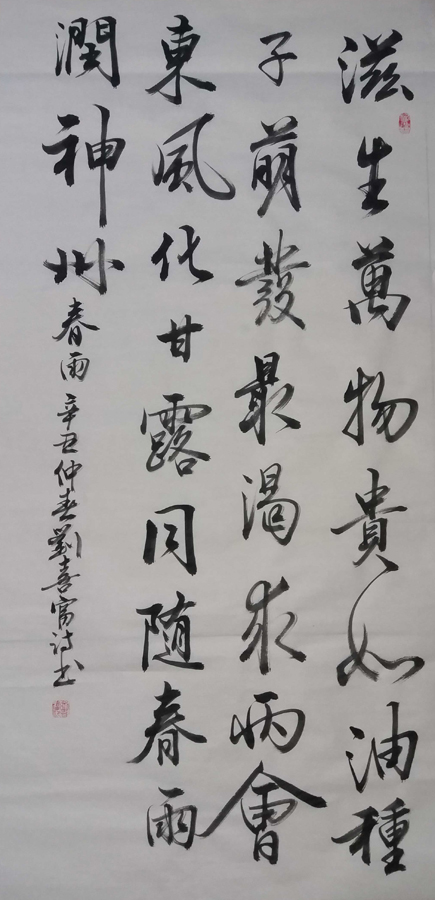 滋生萬物貴如油種
子萌發最渴求會
東風化甘露同随春雨
潤神州
春雨 辛丑仲春劉喜富詩书